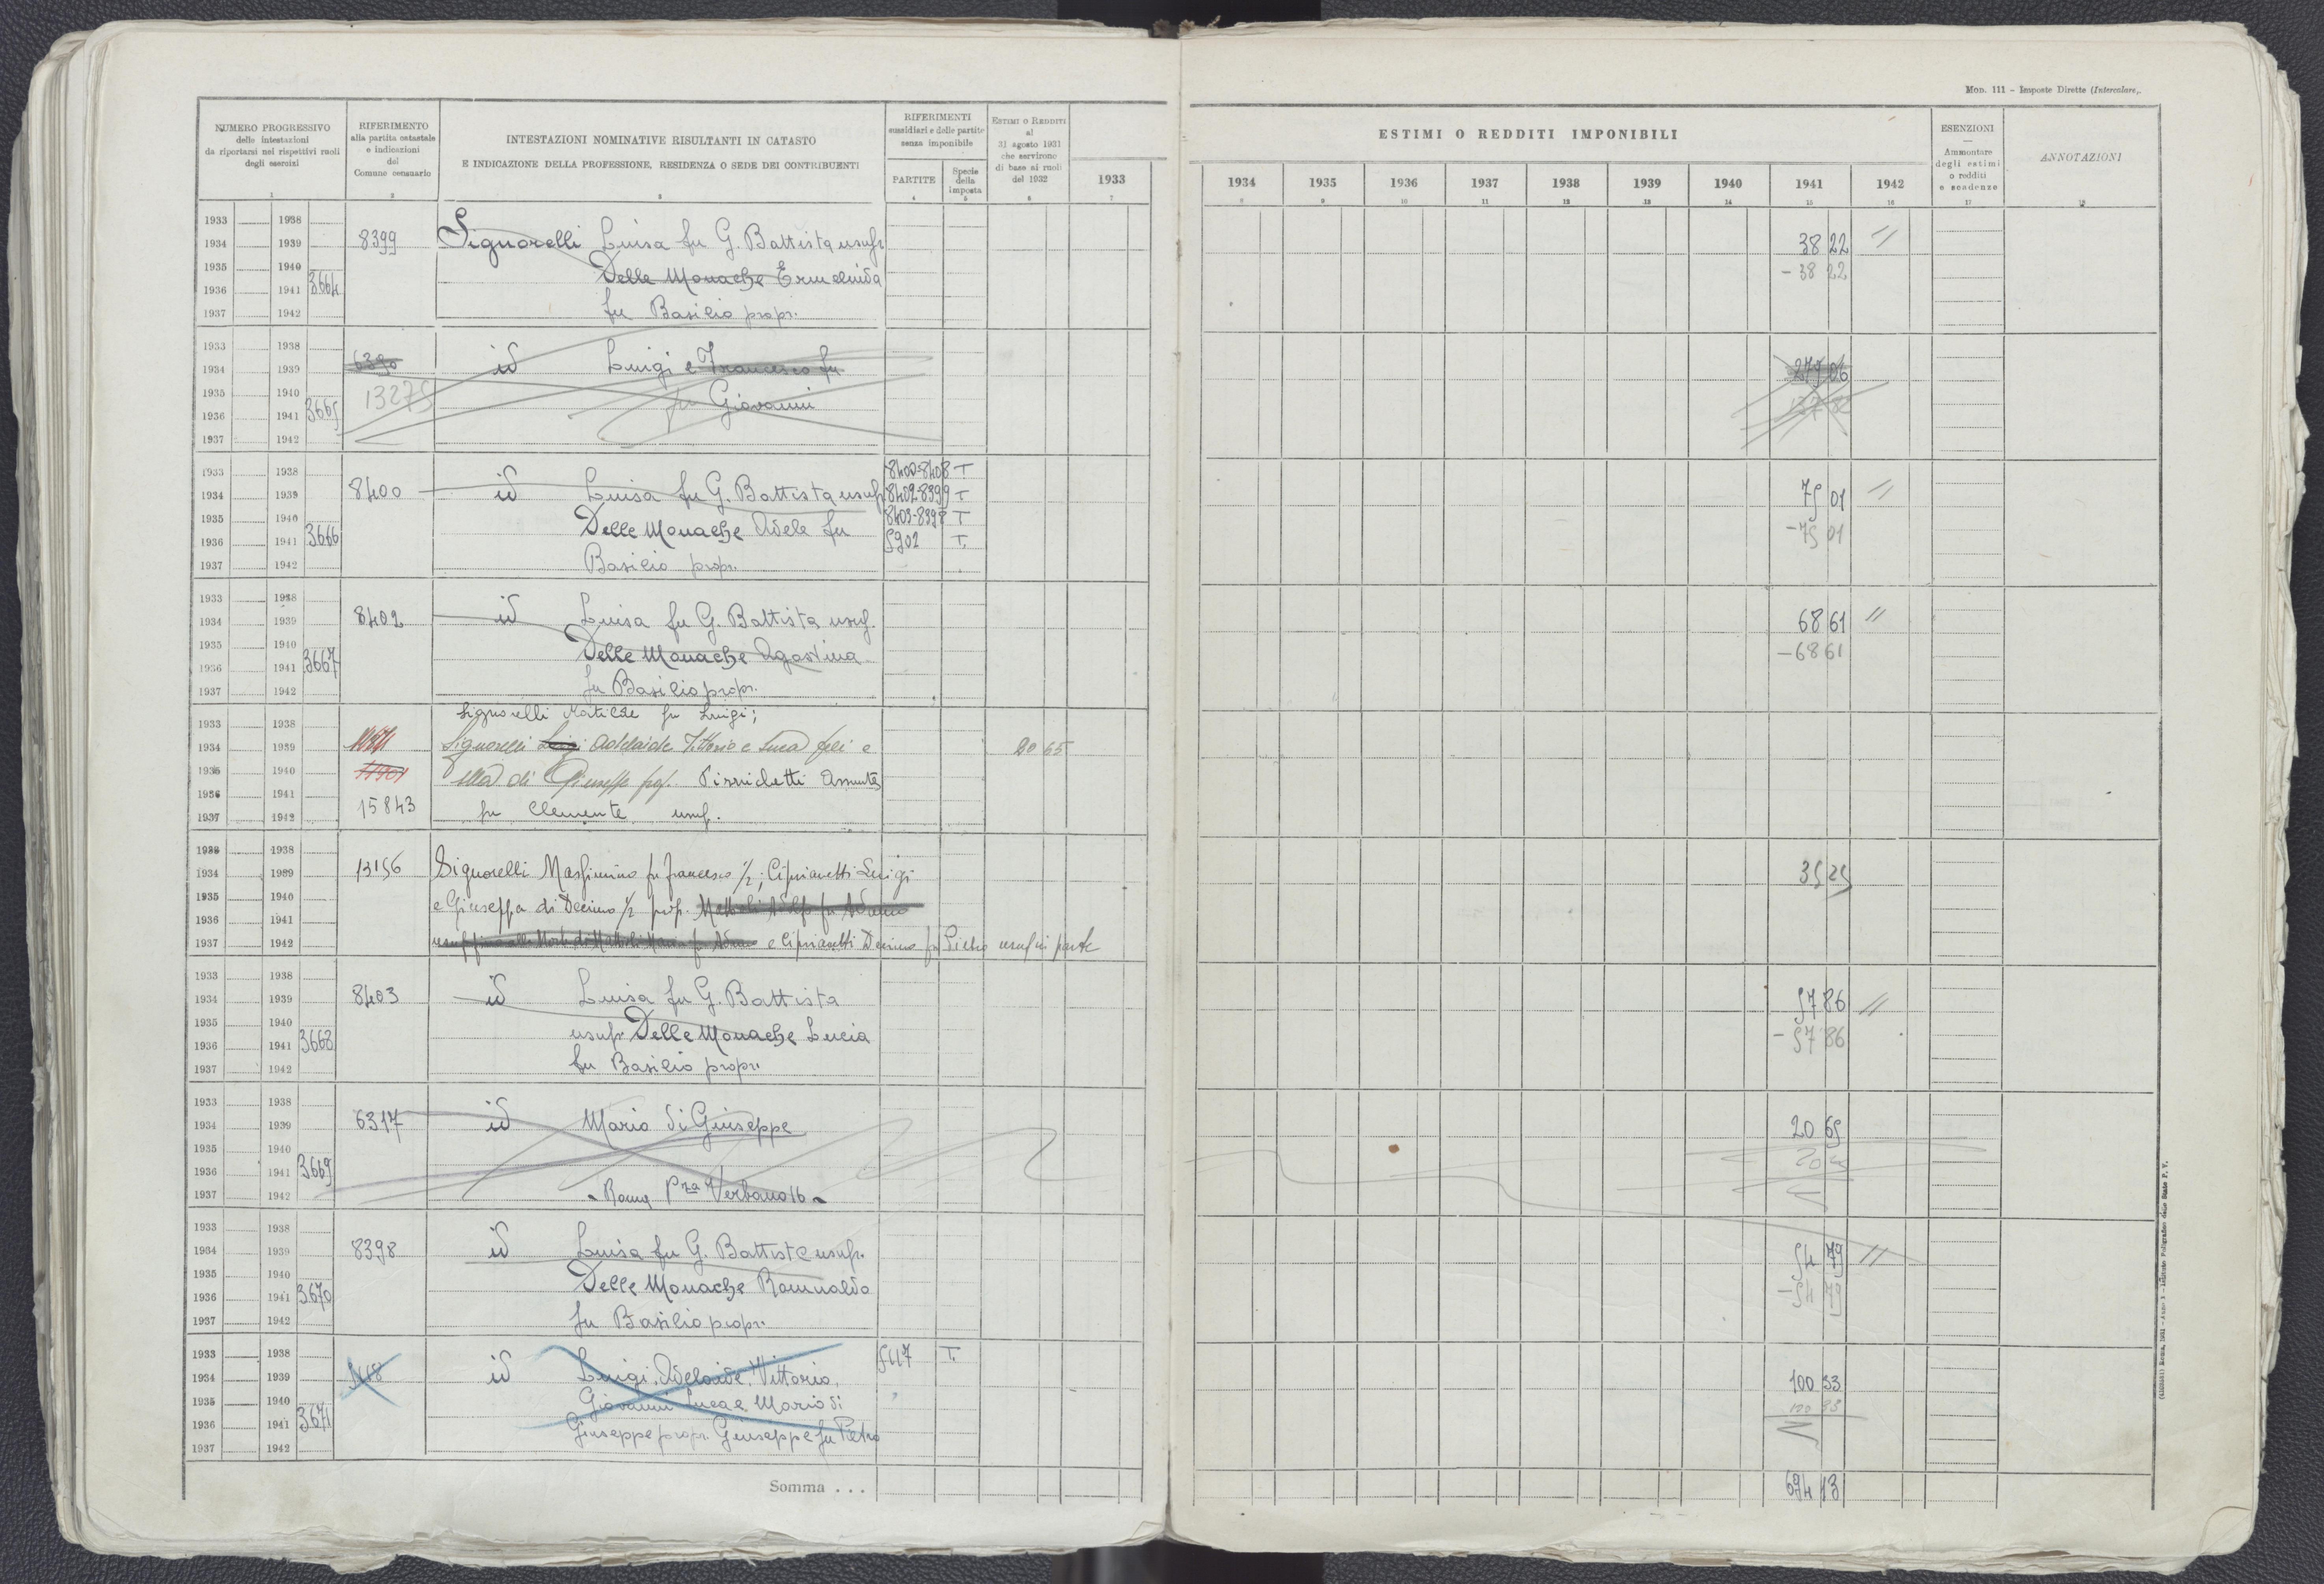 Mod. 111 - Imposte Dirette (Intercalare).
NUMERO PROGRESSIVO
delle intestazioni
da riportarsi nei rispettivi ruoli
degli esercizi
1
RIFERIMENTO
alla partita catastale
e indicazioni
del
Comune censuario
2
INTESTAZIONI NOMINATIVE RISULTANTI IN CATASTO
E INDICAZIONE DELLA PROFESSIONE, RESIDENZA O SEDE DEI CONTRIBUENTI
3
RIFERIMENTI
sussidiari e delle partite
senza imponibile
PARTITE
4
Specie
della
imposta
5
ESTIMI O REDDITI
al
31 agosto 1931
che servirono
di base ai ruoli
del 1932
6
1933
7
ESTIMI O REDDITI IMPONIBILI
1934 1935 1936 1937 1938 1939 1940 1941 1942
8 9 10 11 12 13 14 15 16
ESENZIONI
Ammontare
degli estimi
o redditi
e scadenze
17
ANNOTAZIONI
18
1933 1938
1934 1939 8399 Signorelli Luisa fu G. Battista usufr 38 22 //
1935 1940 Delle Monache Ermelinda - 38 22
1936 1941 3664
1937 1942 fu Basilio propr.
1933 1938
1934 1939 6390 id Luigi e Francesco fu 275 06
1935 1940 13275 fu Giovanni
1936 1941 3665
1937 1942
1933 1938 8400-8408 T
1934 1939 8400 id Luisa fu G. Battista usuf. 8402-8399 T 75 01 //
1935 1940 8403-8398 T
1936 1941 3666 Delle Monache Adele fu 5902 T. - 75 01
1937 1942 Basilio propr.
1933 1938
1934 1939 8402 id Luisa fu G. Battista usuf. 68 61 //
1935 1940 Delle Monache Agostina - 68 61
1936 1941 3667
1937 1942 fu Basilio propr.
Signorelli Matilde fu Luigi;
1933 1938
1934 1939 Signorelli Luigi Adelaide Vittorio e Luca 20 65
1935 1940 11901 di Giuseppe Assunta
1936 1941
1937 1942 15843 fu Clemente usuf.
1933 1938
1934 1939 13156 Signorelli Massimino fu Francesco 1/2; Ciprianetti Luigi 35 25
1935 1940 e Giuseppa di Decimo 1/2 prop.
1936 1941
1937 1942 e Ciprianetti Decimo fu Pietro usuf in parte
1933 1938
1934 1939 8403 id Luisa fu G. Battista 57 86 //
1935 1940 usufr Delle Monache Lucia - 57 86
1936 1941 3668
1937 1942 fu Basilio propr.
1933 1938
1934 1939 6317 id Mario di Giuseppe 20 65
1935 1940
1936 1941 3669
1937 1942 - Roma Pza Verbano 16 -
1933 1938
1934 1939 8398 id Luisa fu G. Battista usufr. 54 79 //
1935 1940 Delle Monache Romualdo - 54 79
1936 1941 3670
1937 1942 fu Basilio propr.
1933 1938 T.
1934 1939 id Luigi, Adelaide, Vittorio, 100 33
1935 1940 Giovanni Luca e Mario di 100 33
1936 1941 3671
1937 1942 Giuseppe propr. Giuseppe fu Pietro
Somma . . . 694 13